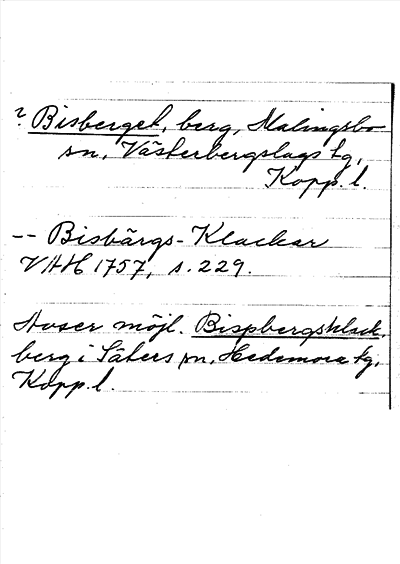 ? Bisberget, berg, Malingsbo
sn, Västerbergslags tg,
Kopp. l.
-- Bisbärgs-Klackar
VAH 1757, s. 229.
Avser möjl. Bispbergsklack,
berg i Säters sn, Hedemora tg,
Kopp. l.